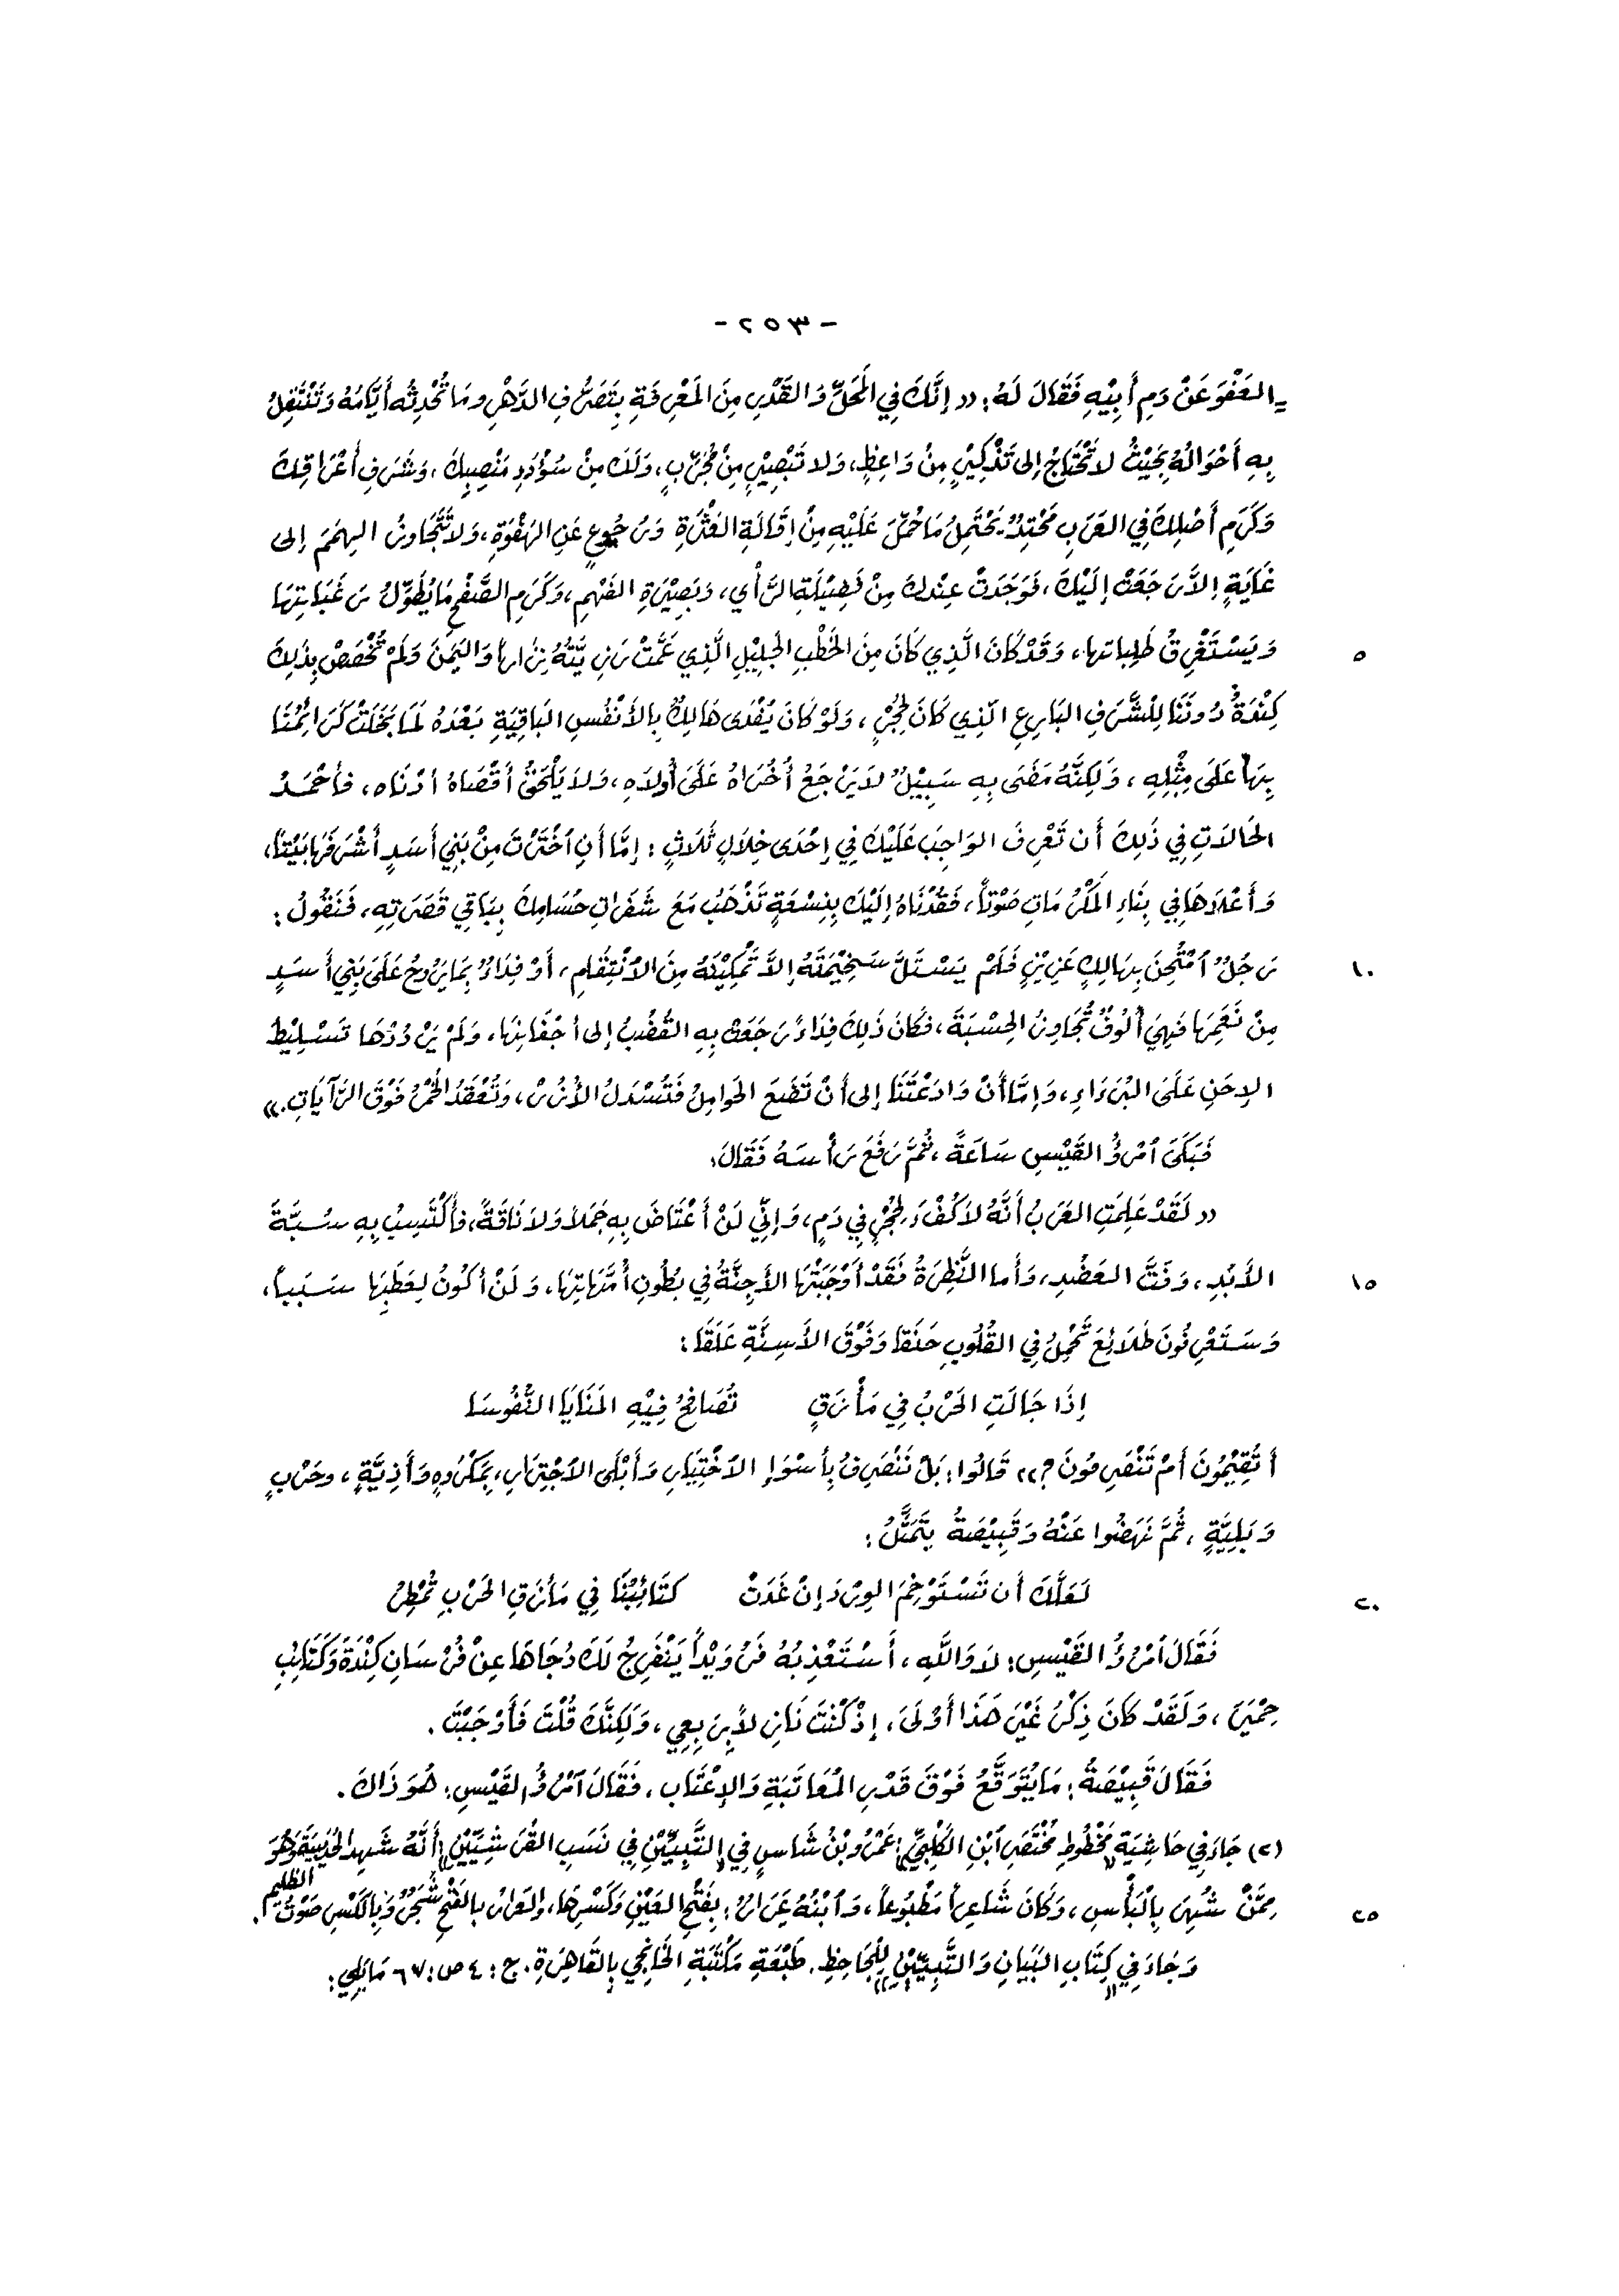 - ٢٥٣ -
= العَفْوَ عَنْ دَمِ أَبِيْهِ فَقَالَ لَهُ: «إِنَّكَ فِي المَحَلِّ وَالقَدْرِ مِنَ المَعْرِفَةِ بِتَصَرُّفِ الدَّهْرِ وَمَا تُحْدِثُه أَيَّامُهُ وَتَنْتَقِلُ
بِهِ أَحْوَالُهُ بِحَيْثُ لا تَحْتَاجُ إلى تَذْكِيْرٍ مِنْ وَاعِظٍ، وَلا تَبْصِيْرٍ مِنْ مُجَرِّبٍ، وَلَكَ مِنْ سُؤْدَدِ مَنْصِبِكَ، وَشَرَفِ أَعْرَاقِكَ
وَكَرَمِ أَصْلِكَ فِي العَرَبِ مَحْتِدٌ يَحْتَمِلُ مَا حُمِّلَ عَلَيْهِ مِنْ إِقَالَةِ العَثْرَةِ وَرُجُوعٍ عَنِ الهَفْوَةِ، وَلا تَتَجَاوَزُ الهِمَمُ إلى
غَايَةٍ إلاَّ رَجَعَتْ إِلَيْكَ، فَوَجَدَتْ عِنْدَكَ مِنْ فَضِيْلَةِ الرَّأْيِ، وَبَصِيْرَةِ الفَهْمِ، وَكَرَمِ الصَّفْحِ مَا يُطَوِّلُ رَغَبَاتِهَا
٥ وَيَسْتَغْرِقُ طَلِبَاتِها، وَقَدْ كَانَ الَّذِي كَانَ مِنَ الخَطْبِ الجَلِيْلِ الَّذِي عَمَّتْ رَزِيَّتُهُ نِزَاراً وَاليَمَنَ وَلَمْ تُخْصَصْ بِذَلِكَ
كِنْدَةُ دُونَنَا لِلْشَّرَفِ البَارِعِ الَّذِي كَانَ لِحُجْرٍ، وَلَوْ كَانَ يُفْدَى هَالِكٌ بِالأَنْفُسِ البَاقِيَةِ بَعْدَهُ لَمَا بَخِلَتْ كَرَائِمُنَا
بِهَا عَلَى مِثْلِهِ، وَلَكِنَّهُ مَضَى بِهِ سَبِيْلٌ لا يَرْجِعُ أُخْرَاهُ عَلَى أُولاَهِ، وَلا يَلْحَقُ أَقْصَاهُ أَدْنَاه، فأَحْمَدُ
الحَالاَتِ فِي ذَلِكَ أَن تَعْرِفَ الوَاجِبَ عَلَيْكَ فِي إِحْدَى خِلاَلٍ ثَلاَثٍ: إِمَّا أَنِ ٱخْتَرْتَ مِنْ بَنِي أَسَدٍ أَشْرَفَهَا بَيْتاً،
وَأَعْلاَهَا فِي بِنَاءِ المَكْرُمَاتِ صَوْتاً، فَقُدْنَاهُ إِلَيْكَ بِنِسْعَةٍ تَذْهَبُ مَعَ شَفَرَاتِ حُسَامِكَ بِبَاقِي قَصَرَتِهِ، فَنَقُولُ:
١٠ رَجُلٌ ٱمْتُحِنَ بِهَالِكٍ عَزِيْزٍ فَلَمْ يَسْتَلَّ سَخِيْمَتَهُ إلاَّ تَمْكِيْنُهُ مِنَ الٱنْتِقَامِ، أَوْ فِدَاءً بِمَا يَرُوحُ عَلَى بَنِي أَسَدٍ
مِنْ نَعَمِهَا فَهِيَ أُلُوفٌ تُجَاوِزُ الحِسْبَةَ، فَكَانَ ذَلِكَ فِدَاءً رَجَعَتْ بِهِ القُضُبُ إلى أَجْفَانِهَا، وَلَمْ يَرْدُدْهَا تَسْلِيْطُ
الإِحَنِ عَلَى البُرَءَاءِ، وَإِمَّا أَنْ وَادَعْتَنَا إلى أَنْ تَضَعَ الحَوَامِلُ فَتُسْدَلُ الأُزُرُ، وَتُعْقَدُ الخُمُرُ فَوْقَ الرَّايَاتِ.»
فَبَكَى ٱمْرُؤُ القَيْسِ سَاعَةً، ثُمَّ رَفَعَ رَأْسَهُ فَقَالَ:
«لَقَدْ عَلِمَتِ العَرَبُ أَنَّهُ لاَكُفْءَ لِحُجْرٍ فِي دَمٍ، وَإِنِّي لَنْ أَعْتَاضَ بِهِ جَمَلاً وَلاَ نَاقَةً، فأَكْتَسِبُ بِهِ سُبَّةَ
١٥ الأَبَدِ، وَفَتَّ العَضُدِ، وَأَما النَّظِرَةُ فَقَدْ أَوْجَبَتْهَا الأَجِنَّةُ فِي بُطُونِ أُمَّهَاتِهَا، وَلَنْ أَكُونَ لِعَطَبِهَا سَبَباً،
وَسَتَعْرِفُونَ طَلاَئِعَ تَحْمِلُ فِي القُلُوبِ حَنَقاً وَفَوْقَ الأَسِنَّةِ عَلَقَاً:
إِذَا جَالَتِ الحَرْبُ فِي مَأْزَقٍ تُصَافِحُ فِيْهِ المَنَايَا النُّفُوسَا
أَتُقِيْمُونَ أَمْ تَنْصَرِفُونَ؟» قَالُوا: بَلْ نَنْصَرِفُ بِأَسْوَإِ الٱخْتِيَارِ وَأَبْلَى الٱجْتِرَارِ، بِمَكْرُوهٍ وَأَذِيَّةٍ، وحَرْبٍ
وَبَلِيَّةٍ، ثُمَّ نَهَضُوا عَنْهُ وَقَبِيْصَةُ يَتَمَثَّلُ:
٢٠ لَعَلَّكَ أَن تَسْتَوْخِمَ الوِرْدَ إِنْ غَدَتْ كتَائِبُنَا فِي مَأْزَقِ الحَرْبِ تُمْطِرُ
فَقَالَ ٱمْرُؤُ القَيْسِ: لاَ وَاللَّهِ، أَسْتَعْذِبُهُ فَرُوَيْداً يَنْفَرِجُ لَكَ دُجَاهَا عِنْ فُرْسَانِ كِنْدَةَ وَكَتَائِبِ
حِمْيَرَ، وَلَقَدْ كَانَ ذِكْرُ غَيْرِ هَذَا أَوْلَى، إِذْ كُنْتَ نَازِلاً بِرَبِعِي، وَلَكِنَّكَ قُلْتَ فَأَوْجَبْتَ.
فَقَالَ قَبِيْصَةُ: مَا يُتَوَقَّعُ فَوْقَ قَدْرِ المُعَاتَبَةِ وَالإِعْتَاب. فَقَالَ ٱمْرُؤُ القَيْسِ: هُوَ ذَاكَ.
(٢) جَاءَ فِي حَاشِيَةِ مَخْطُوطِ مُخْتَصَرِ ٱبْنِ الكَلْبِيِّ: عَمْرُو بْنُ شَاسٍ فِي «التَّبْيِيْنِ فِي نَسَبِ القُرَشِيِّيْنَ» أَنَّهُ شَهِدَ الحُدَيْبِيَةَ وَهُوَ
٢٥ مِمَّنْ شُهِرَ بِالْبَأْسِ، وَكَانَ شَاعِراً مَطْبُوعاً، وَٱبْنُهُ عَرَارٌ: بِفَتْحِ العَيْنِ وَكَسْرِهَا، والعَرَارُ بالفَتْحِ شَجَرٌ وَبِالكَسْرِ صَوْتُ الظَّلِيمِ.
وَجَاءَ فِي كِتَابِ «البَيَانِ وَالتَّبِيِيْنِ» لِلْجَاحِظِ. طَبْعَةِ مَكْتَبَةِ الخَانْجِي بِالقَاهِرَةِ. ج: ٤ ص: ٦٧ مَا يَلِي: